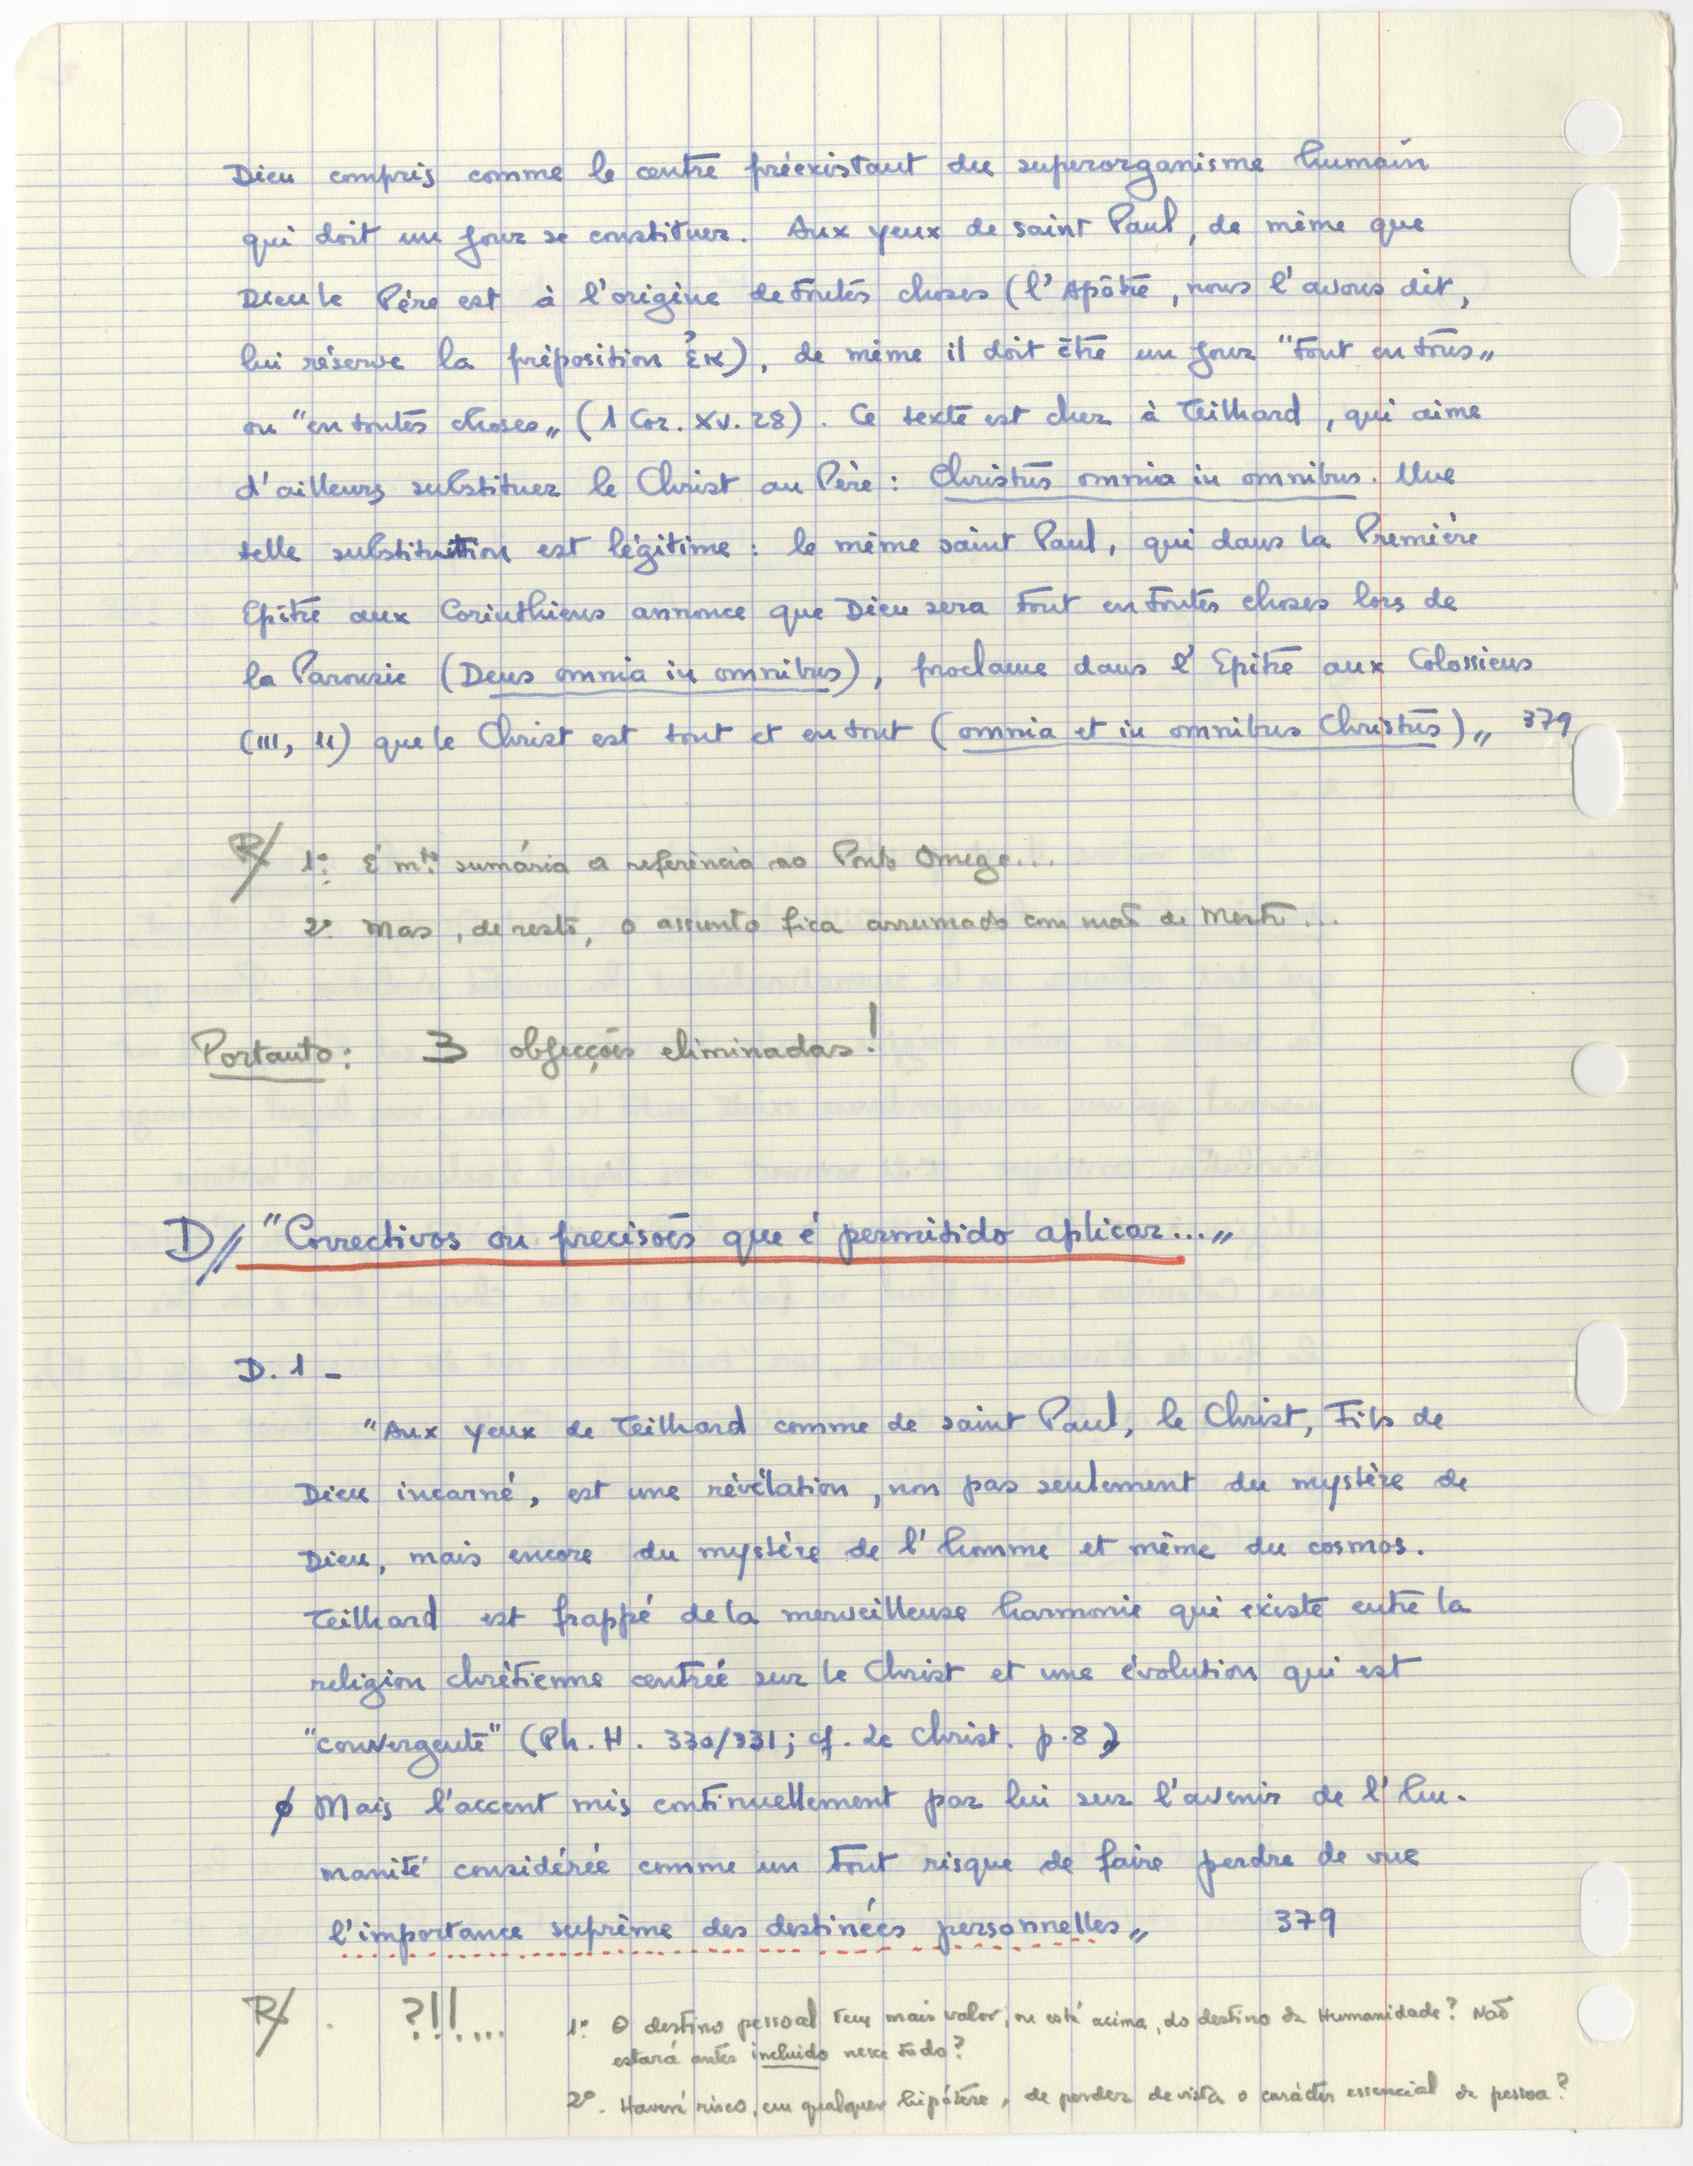 Dieu compris comme le centre préexistant du superorganisme humain
qui doit un jour se constituer. Aux yeux de saint Paul, de même que
Dieu le Père est à l'origine de toutes choses (l'Apôtre, nous l'avons dit,
lui réserve la préposition ἐκ), de même il doit être un jour "tout en tous„
ou "en toutes choses„ (1 Cor. XV. 28). Ce texte est cher à Teilhard, qui aime
d'ailleurs substituer le Christ au Père : Christus omnia in omnibus. Une
telle substitution est légitime : le même saint Paul, qui dans la Première
Epître aux Corinthiens annonce que Dieu sera tout en toutes choses lors de
la Parousie (Deus omnia in omnibus), proclame dans l'Epitre aux Colossiens
(III, 11) que le Christ est tout et en tout (omnia et in omnibus Christus)„ 379
R/ 1º: É mtº sumária a referência ao Ponto Omega...
2º. Mas, de resto, o assunto fica arrumado com mão de Mestre...
Portanto: 3 objecções eliminadas!
D// "Correctivos ou precisões que é permitido aplicar...„
D. 1 -
"Aux yeux de Teilhard comme de saint Paul, le Christ, Fils de
Dieu incarné, est une révélation, non pas seulement du mystère de
Dieu, mais encore du mystère de l'homme et même du cosmos.
Teilhard est frappé de la merveilleuse harmonie qui existe entre la
religion chrétienne centrée sur le Christ et une évolution qui est
"convergente" (Ph. H. 330/331; cf. Le Christ. p. 8)
ø Mais l'accent mis continuellement par lui sur l'avenir de l'hu-
manité considérée comme un tout risque de faire perdre de vue
l'importance suprême des destinées personnelles„ 379
R/ . ?!!.... 1º: O destino pessoal tem mais valor, ou está acima, do destino da Humanidade? Não
estará antes incluido nesse todo?
2º. Haverá risco, em qualquer hipótese, de perder de vista o carácter essencial da pessoa?